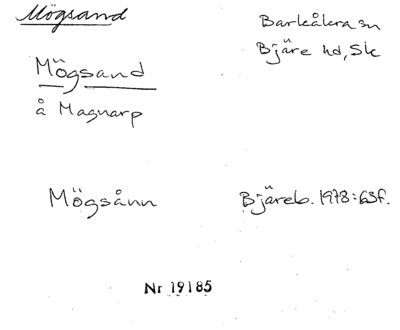 Mögsand
Barkåkra sn
Bjäre hd, Sk
Mögsand
å Magnarp
Mögsånn
Bjäreb. 1978:63f.
Nr 19185